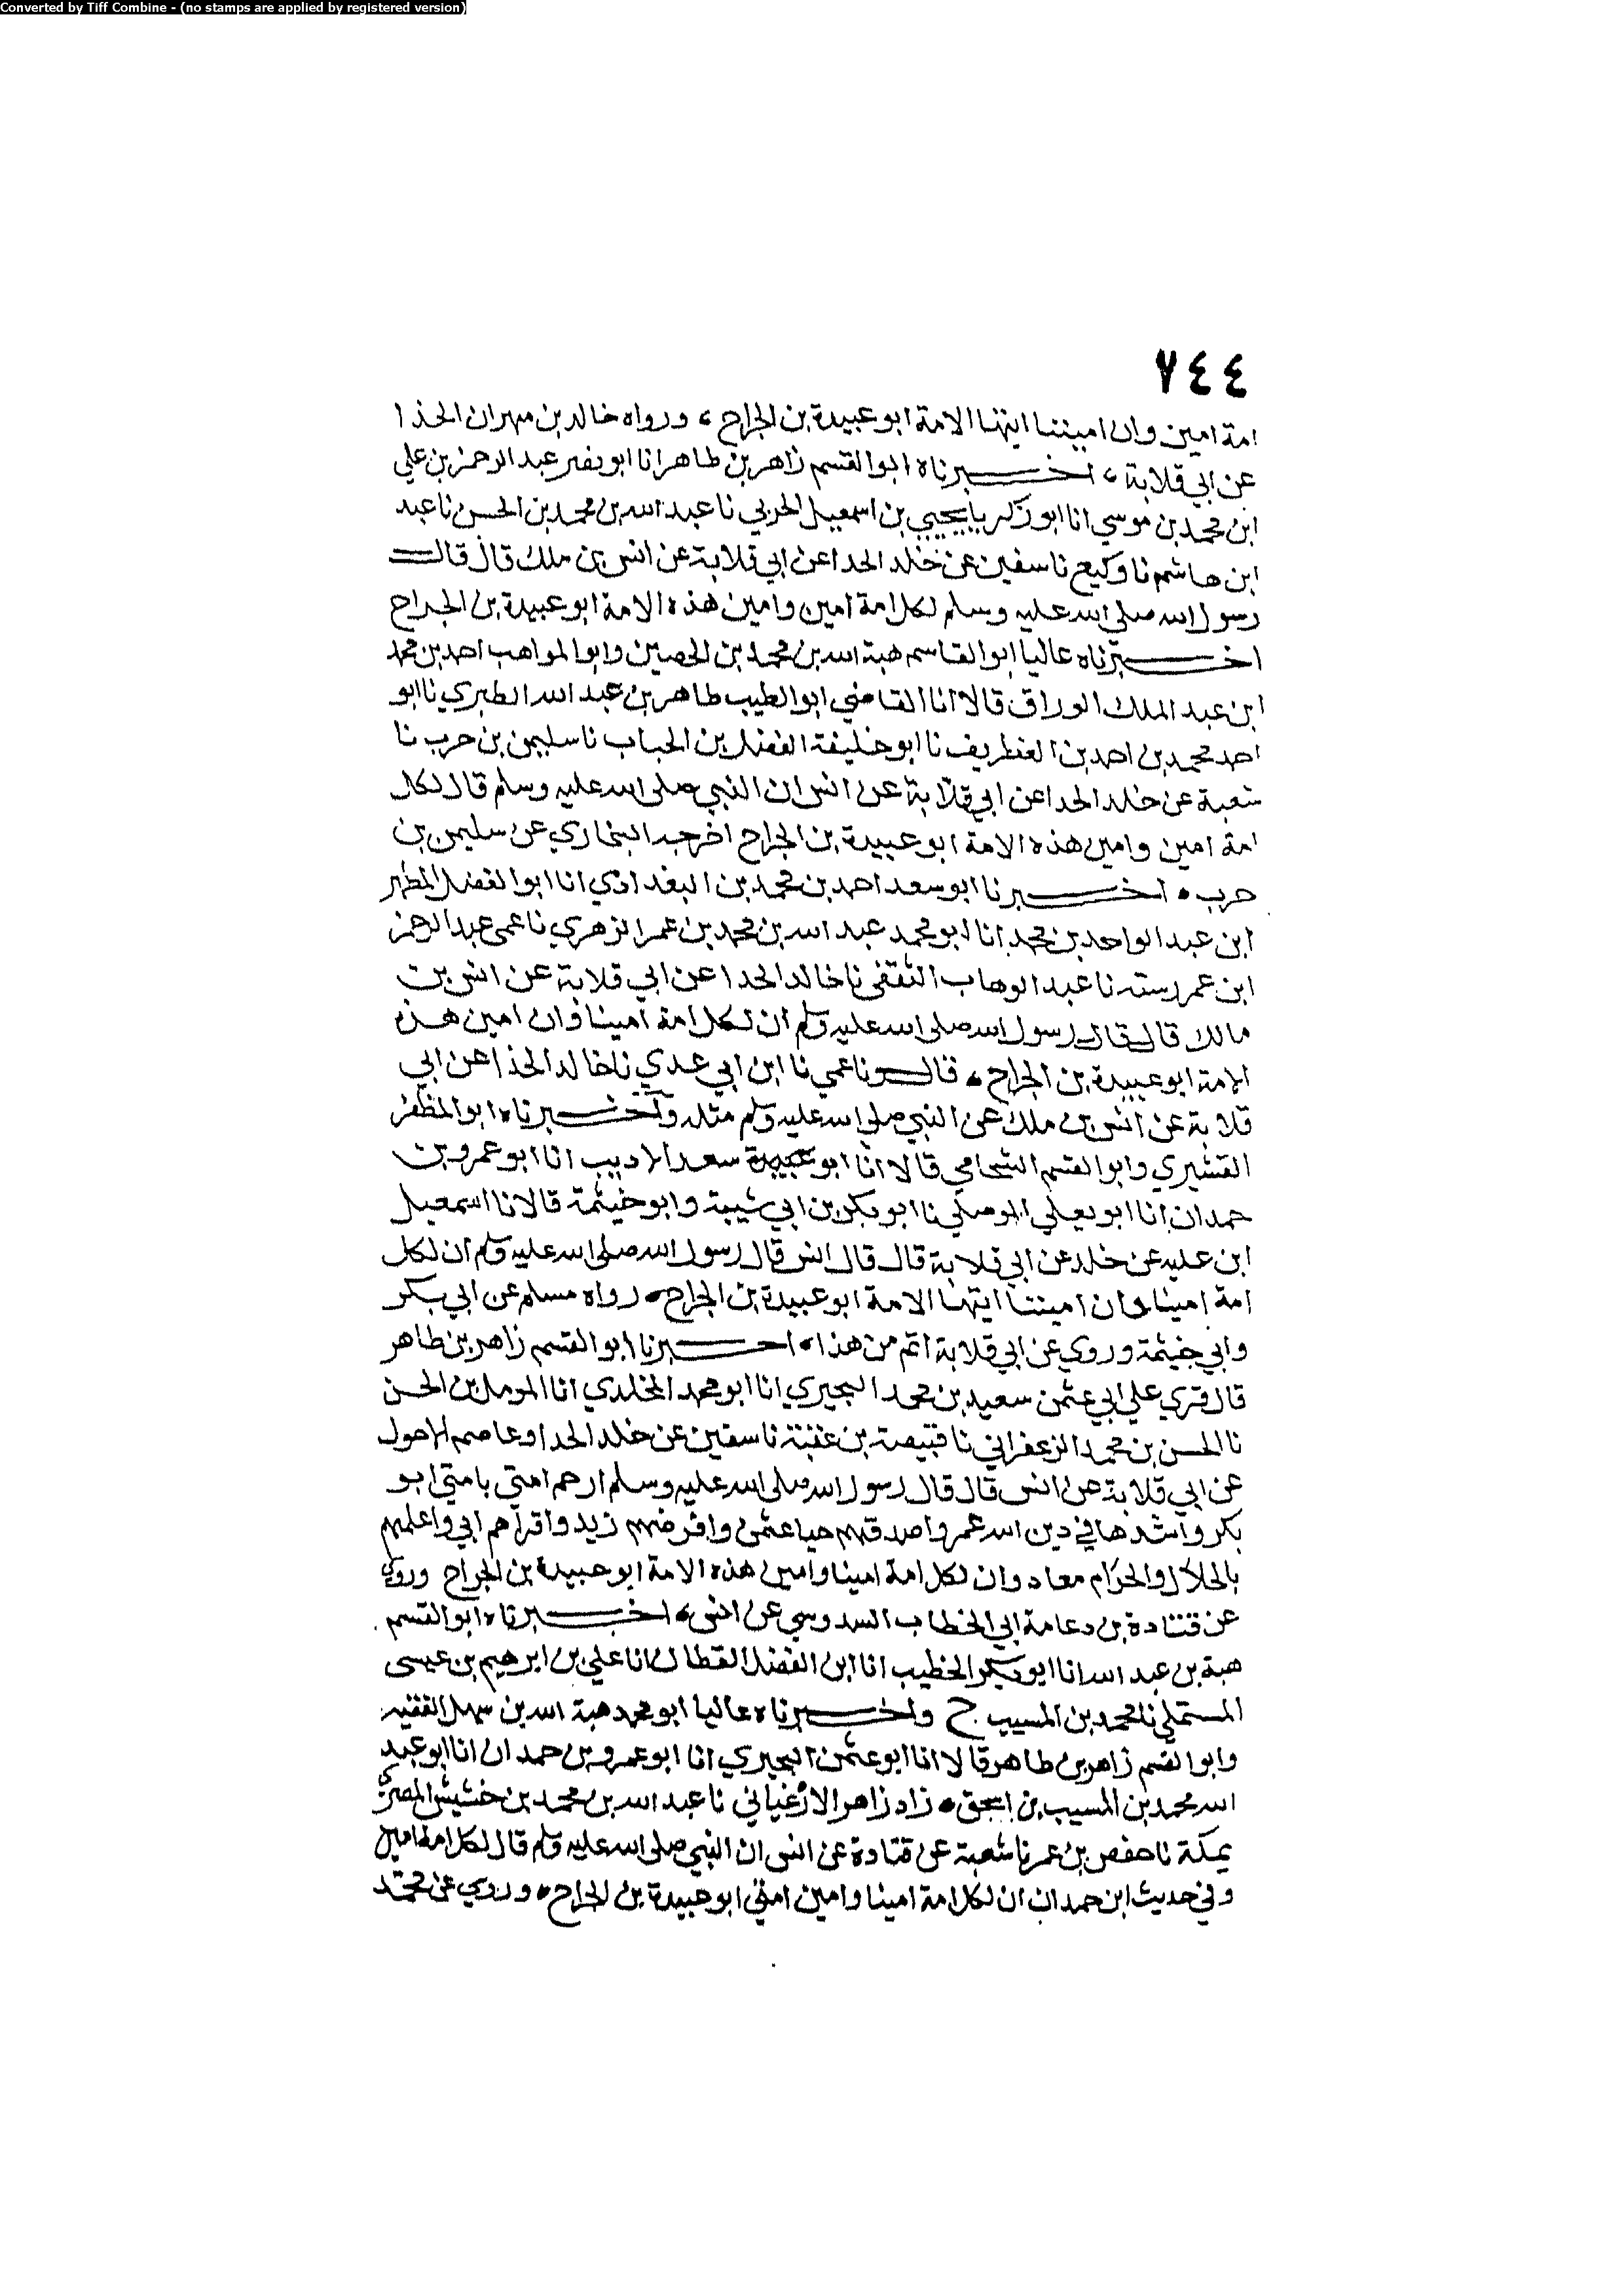 Converted by Tiff Combine - (no stamps are applied by registered version)
٧٤٤
امة امين وان اميننا ايتها الامة ابو عبيدة بن الجراح، ورواه خالد بن مهران الحذا
عن ابي قلابة، اخبرناه ابو القسم زاهر بن طاهر انا ابو نصر عبد الرحمن بن علي
ابن محمد بن موسي انا ابو زكريا يحيي بن اسمعيل الحربي نا عبد الله بن محمد بن الحسن نا عبد
ابن هاشم نا وكيع نا سفين عن خلد الحدا عن ابي قلابة عن انس بن ملك قال قال
رسول الله صلى الله عليه وسلم لكل امة امين وامين هذه الامة ابو عبيدة بن الجراح
اخبرناه عاليا ابو القاسم هبة الله بن محمد بن الحصين وابو المواهب احمد بن محمد
ابن عبد الملك الوراق قالا انا القاضي ابو الطيب طاهر بن عبد الله الطبري نا ابو
احمد محمد بن احمد بن الغطريف نا ابو خليفة الفضل بن الحباب نا سليمن بن حرب نا
شعبة عن خلد الحدا عن ابي قلابة عن انس ان النبي صلى الله عليه وسلم قال لكل
امة امين وامين هذه الامة ابو عبيدة بن الجراح اخرجه البخاري عن سليمن بن
حرب • اخبرنا ابو سعد احمد بن محمد بن البغدادي انا ابو الفضل المطهر
ابن عبد الواحد بن محمد انا ابو محمد عبد الله بن محمد بن عمر الزهري نا عمي عبد الرحمن
ابن عمر رسته نا عبد الوهاب الثقفي نا خالد الحدا عن ابي قلابة عن انس بن
مالك قال قال رسول الله صلى الله عليه وسلم ان لكل امة امينا وان امين هذه
الامة ابو عبيدة بن الجراح • قال ونا عمي نا ابن ابي عدي نا خالد الحذا عن ابي
قلابة عن انس بن ملك عن النبي صلى الله عليه وسلم مثله واخبرناه ابو المظفر
القشيري وابو القسم الشحامي قالا انا ابو سعد الاديب انا ابو عمرو بن
حمدان انا ابو يعلي الموصلي نا ابو بكر بن ابي شيبة وابو خيثمة قالا نا اسمعيل
ابن عليه عن خلد عن ابي قلابة قال قال انس قال رسول الله صلى الله عليه وسلم ان لكل
امة امينا وان اميننا ايتها الامة ابو عبيدة بن الجراح • رواه مسلم عن ابي بكر
وابي خيثمة وروي عن ابي قلابة اتم من هذا • اخبرنا ابو القسم زاهر بن طاهر
قال قري علي ابي عثمن سعيد بن محمد البحيري انا ابو محمد المخلدي انا المومل بن الحسن
نا الحسن بن محمد الزعفراني نا قبيصة بن عقبة نا سفين عن خلد الحدا وعاصم الاحول
عن ابي قلابة عن انس قال قال رسول الله صلى الله عليه وسلم ارحم امتي بامتي ابو
بكر واشدها في دين الله عمر واصدقهم حيا عثمن وافرضهم زيد واقراهم ابي واعلمهم
بالحلال والحرام معاد وان لكل امة امينا وامين هذه الامة ابو عبيدة بن الجراح وروي
عن قتادة بن دعامة ابي الخطاب السدوسي عن انس، اخبرناه ابو القسم
هبة بن عبد الله انا ابو بكر الخطيب انا ابن الفضل القطان انا علي بن ابرهيم بن عيسى
المستملي نا محمد بن المسيب ح واخبرناه عاليا ابو محمد هبة الله بن سهل الفقيه
وابو القسم زاهر بن طاهر قالا انا ابو عثمن البحيري انا ابو عمرو بن حمدان انا ابو عبد
الله محمد بن المسيب بن اسحق • زاد زاهر الارغياني نا عبد الله بن محمد بن خشيش المصري
بمكة نا حفص بن عمر نا شعبة عن قتادة عن انس ان النبي صلى الله عليه وسلم قال لكل امة امين
وفي حديث ابن حمدان ان لكل امة امينا وامين امتي ابو عبيدة بن الجراح • وروي عن محمد